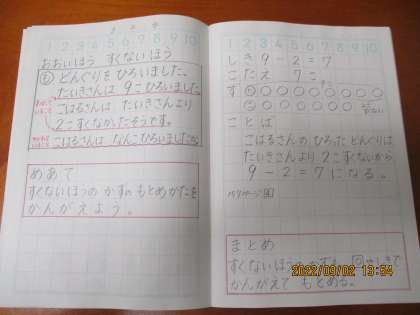 1 2 3 4 5 6 7 8 9 10
おおいほう すくないほう
も どんぐりをひろいました。
たいきさんは 9こひろいました。
こはるさんは たいきさんより
2こすくなかったそうです。
こはるさんは なんこひろいましたか。
めあて
すくないほうの かずの もとめかたを
かんがえよう。
1 2 3 4 5 6 7 8 9 10
しき 9 - 2 = 7
こたえ 7こ
ず
ことば
こはるさんの ひろった どんぐりは
たいきさんより 2こすくないから
9 - 2 = 7 になる。
まとめ
すくないほうのかずも
しきで
かんがえて もとめる。
2022/09/02 13:54